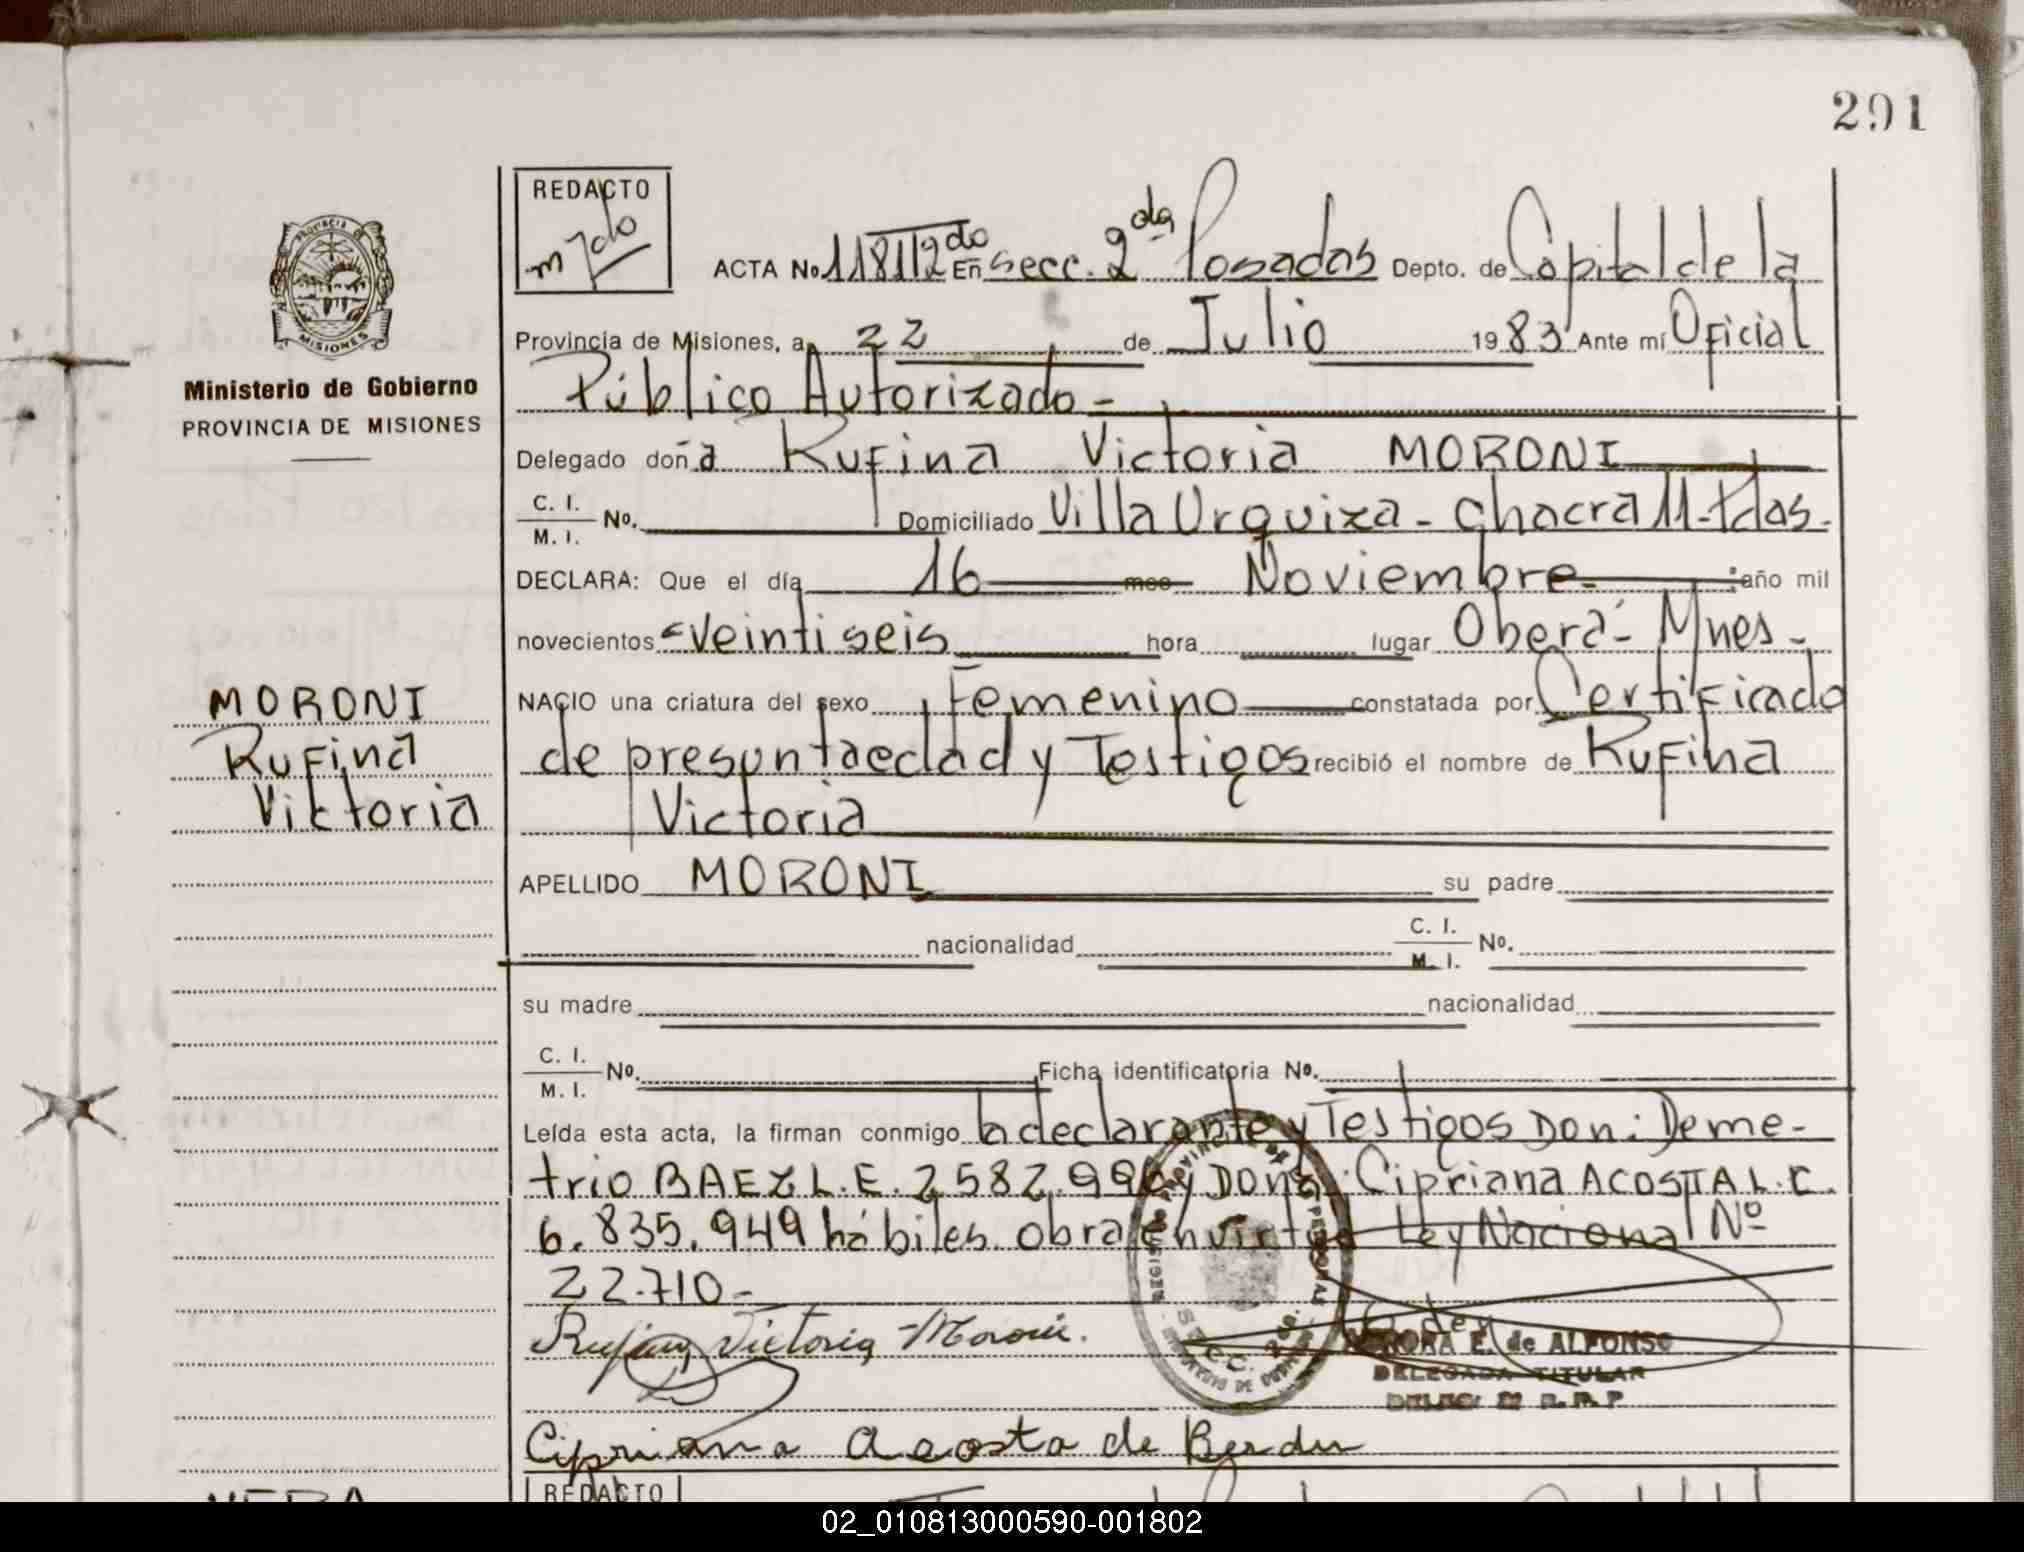 291
REDACTO
ACTA No. 1181 T 2do En secc. 2da Posadas Depto. de Capital de la
PROVINCIA DE
MISIONES
Provincia de Misiones, a 22 de Julio 1983 Ante mí Oficial
Ministerio de Gobierno
PROVINCIA DE MISIONES
Público Autorizado-
Delegado doña Rufina Victoria MORONI
C. I.
M. I. No. Domiciliado Villa Urquiza - Chacra 11-Pdas.
DECLARA: Que el día 16 mes Noviembre- año mil
novecientos veintiseis hora lugar Oberá- Mnes-
MORONI
Rufina
Victoria
NACIO una criatura del sexo Femenino constatada por Certificado
de presuntaedad y Testigos recibió el nombre de Rufina
Victoria
APELLIDO MORONI su padre
nacionalidad C. I.
M. I. No.
su madre nacionalidad
C. I.
M. I. No. Ficha identificatoria No.
Leída esta acta, la firman conmigo la declarante y Testigos Don: Deme-
trio BAEZ L.E. 2582.996 y Doña: Cipriana ACOSTA L.C.
6.835.949 hábiles. obra en virtud Ley Nacional Nº
22.710-
Rufina Victoria Moroni.
E. de ALFONSO
DELEGADA TITULAR
Cipriana Acosta de Berdu
REDACTO
02_010813000590-001802